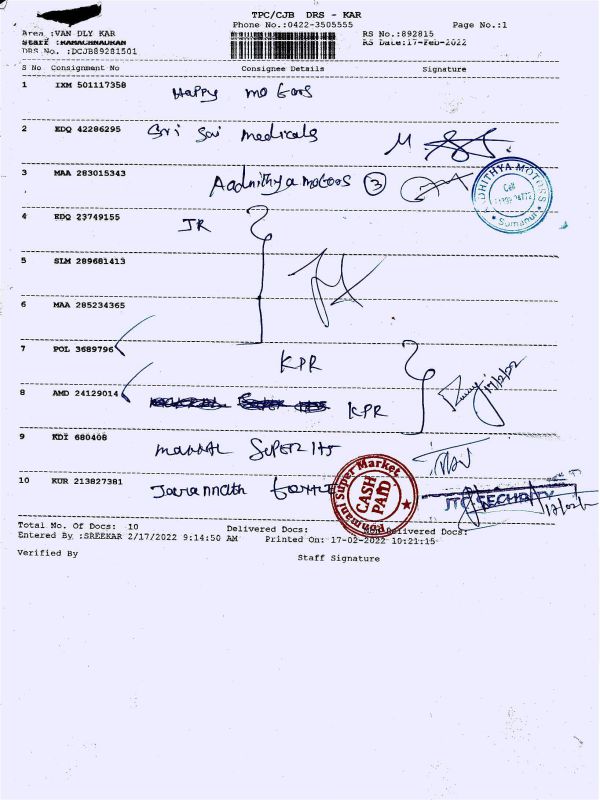 TPC/CJB DRS - KAR
Phone No.:0422-3505555 Page No.:1
Area :VAN DLY KAR RS No.:892815
Staff :RAMACHNADRAN RS Date:17-Feb-2022
DRS No. :DCJB89281501
S No Consignment No Consignee Details Signature
1 IXM 501117358 Happy motors
2 EDQ 42286295 Sri Sai medicals M.
3 MAA 283015343 Aadhithya motors 3
ADHITHYA MOTORS
Cell
Sumanur
4 EDQ 23749155 JR
5 SLM 289681413
6 MAA 285234365
7 POL 3689796 KPR
17/2/22
8 AMD 24129014 KPR
9 KDI 680408
10 KUR 213827381
Kanmani Super Market
CASH
PAID
Total No. Of Docs: 10 Delivered Docs: Non Delivered Docs:
Entered By :SREEKAR 2/17/2022 9:14:50 AM Printed On: 17-02-2022 10:21:15
Verified By Staff Signature